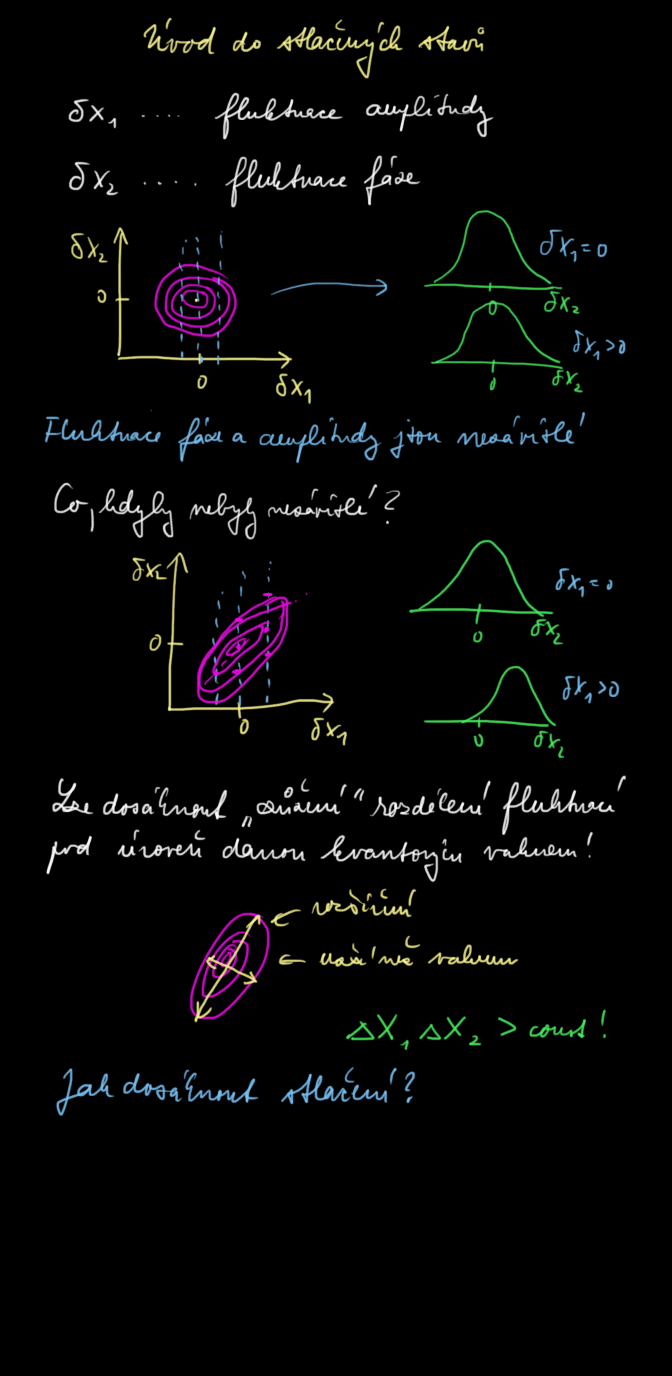 Úvod do stlačených stavů
δX₁ .... fluktuace amplitudy
δX₂ .... fluktuace fáze
δX₂
0
0
δX₁
δX₁=0
0
δX₂
δX₁>0
0
δX₂
Fluktuace fáze a amplitudy jsou nezávislé
Co, kdyby nebyly nezávislé?
δX₂
0
0
δX₁
δX₁=0
0
δX₂
δX₁>0
0
δX₂
Lze dosáhnout „zúžení“ rozdělení fluktuací
pod úroveň danou kvantovým vakuem!
← rozšíření
← užší než vakuum
ΔX₁ ΔX₂ > const!
Jak dosáhnout stlačení?